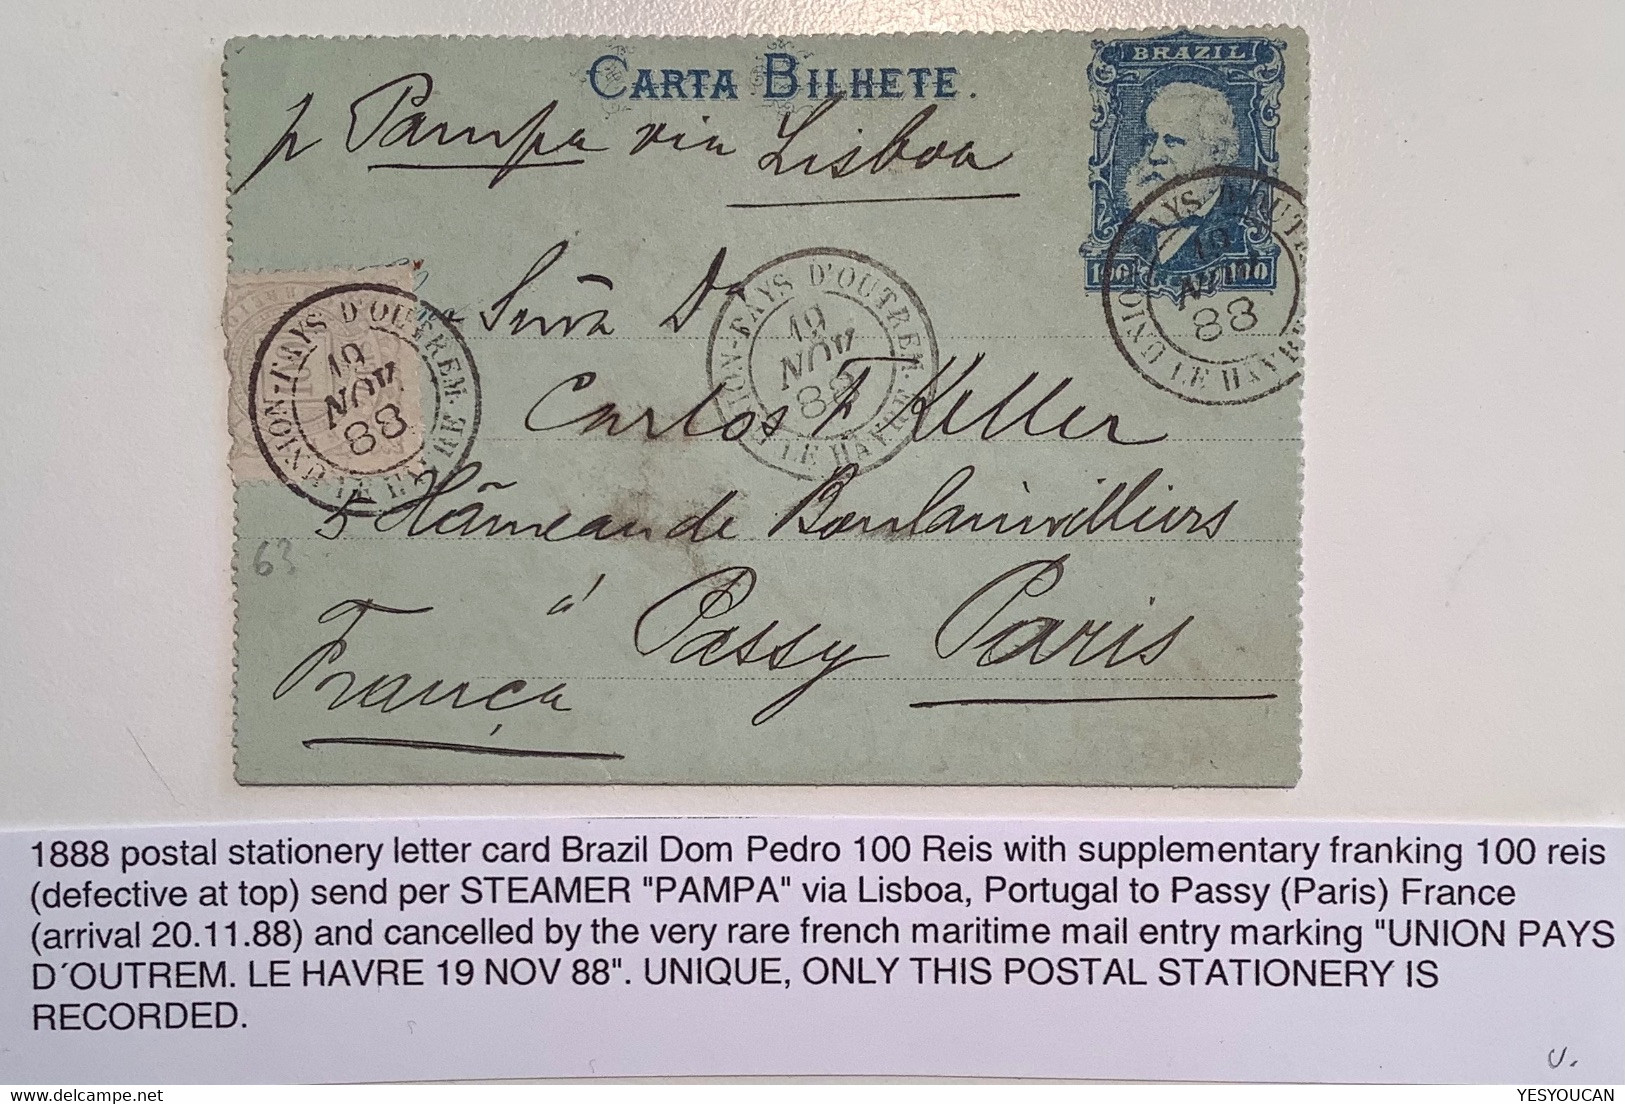 CARTA BILHETE.
BRAZIL
p Pampa via Lisboa
100 100
UNION-PAYS D'OUTREM. LE HAVRE
19
NOV
88
UNION-PAYS D'OUTREM. LE HAVRE
19
NOV
88
UNION-PAYS D'OUTREM. LE HAVRE
19
NOV
88
Carlos F Keller
5 Hâmeau de Boulainvilliers
63
à Passy Paris
França
1888 postal stationery letter card Brazil Dom Pedro 100 Reis with supplementary franking 100 reis
(defective at top) send per STEAMER "PAMPA" via Lisboa, Portugal to Passy (Paris) France
(arrival 20.11.88) and cancelled by the very rare french maritime mail entry marking "UNION PAYS
D´OUTREM. LE HAVRE 19 NOV 88". UNIQUE, ONLY THIS POSTAL STATIONERY IS
RECORDED.
YESYOUCAN